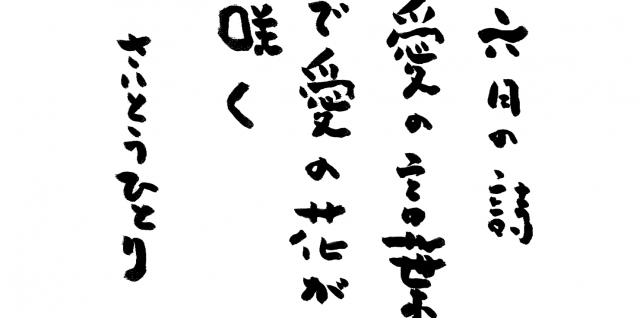 六月の詩
愛の言葉
で愛の花が
咲く
さいとうひとり